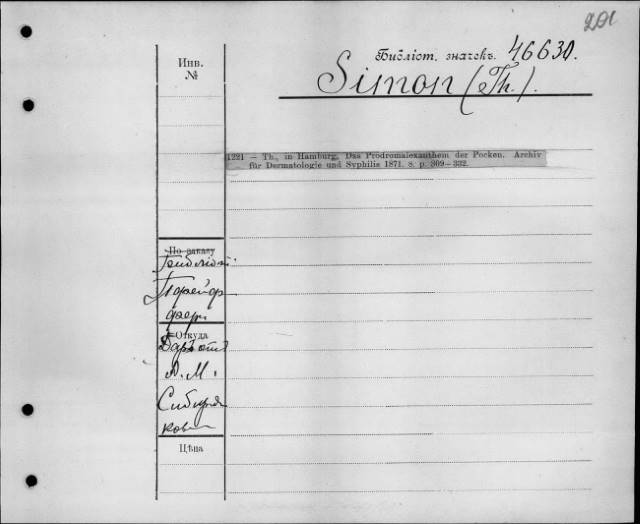 201
Библіот. значекъ. 46630.
Simon (Th.).
Инв.
№
1221 — Th., in Hamburg, Das Prodromalexanthem der Pocken. Archiv
für Dermatologie und Syphilis 1871. 8. p. 309—332.
По заказу
Откуда
Даръ отъ
А. М.
Сибиря
кова
Цѣна